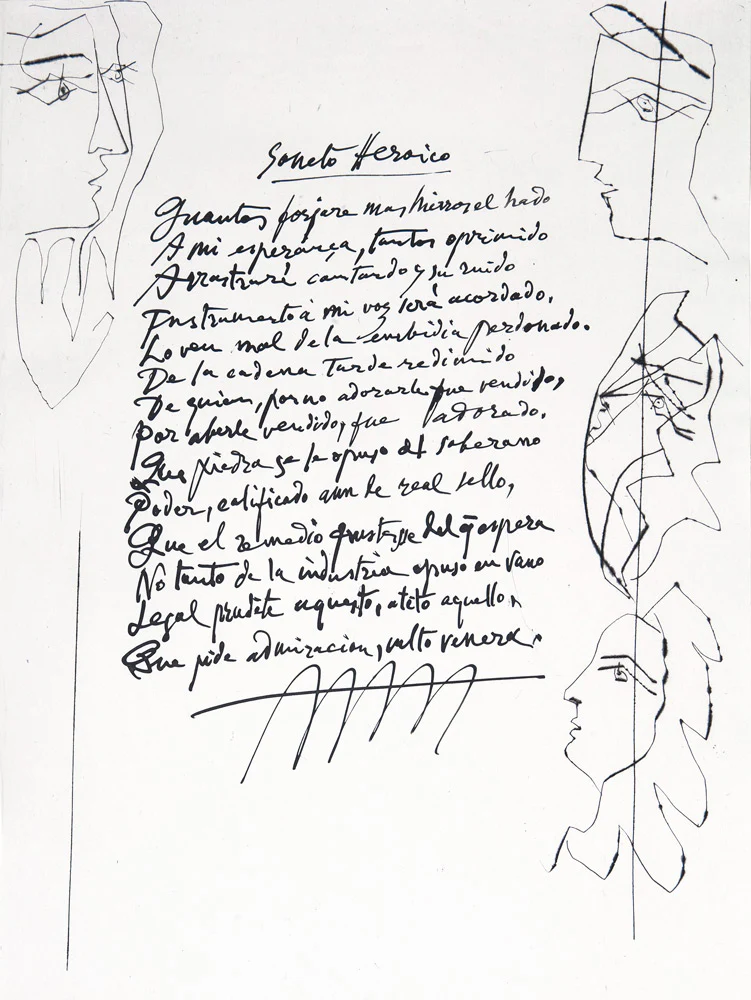 Soneto Heroico
Quantos forjare mas hierros el hado
A mi esperança, tantos oprimido
Arrastraré cantando, y su ruido
Instrumento à mi voz será acordado.
Joven mal de la enbidia perdonado.
De la cadena Tarde redimido
De quien, por no adorarle fue vendido,
Por aberle vendido, fue adorado.
Que piedra se le opuso al soberano
Poder, calificado aun de real sello,
Que el remedio frustasse del q̄ espera
No tanto de la industria opuso en vano
Legal prudẽte aquesto, atẽto aquello,
Que pide admiracion, culto venera.